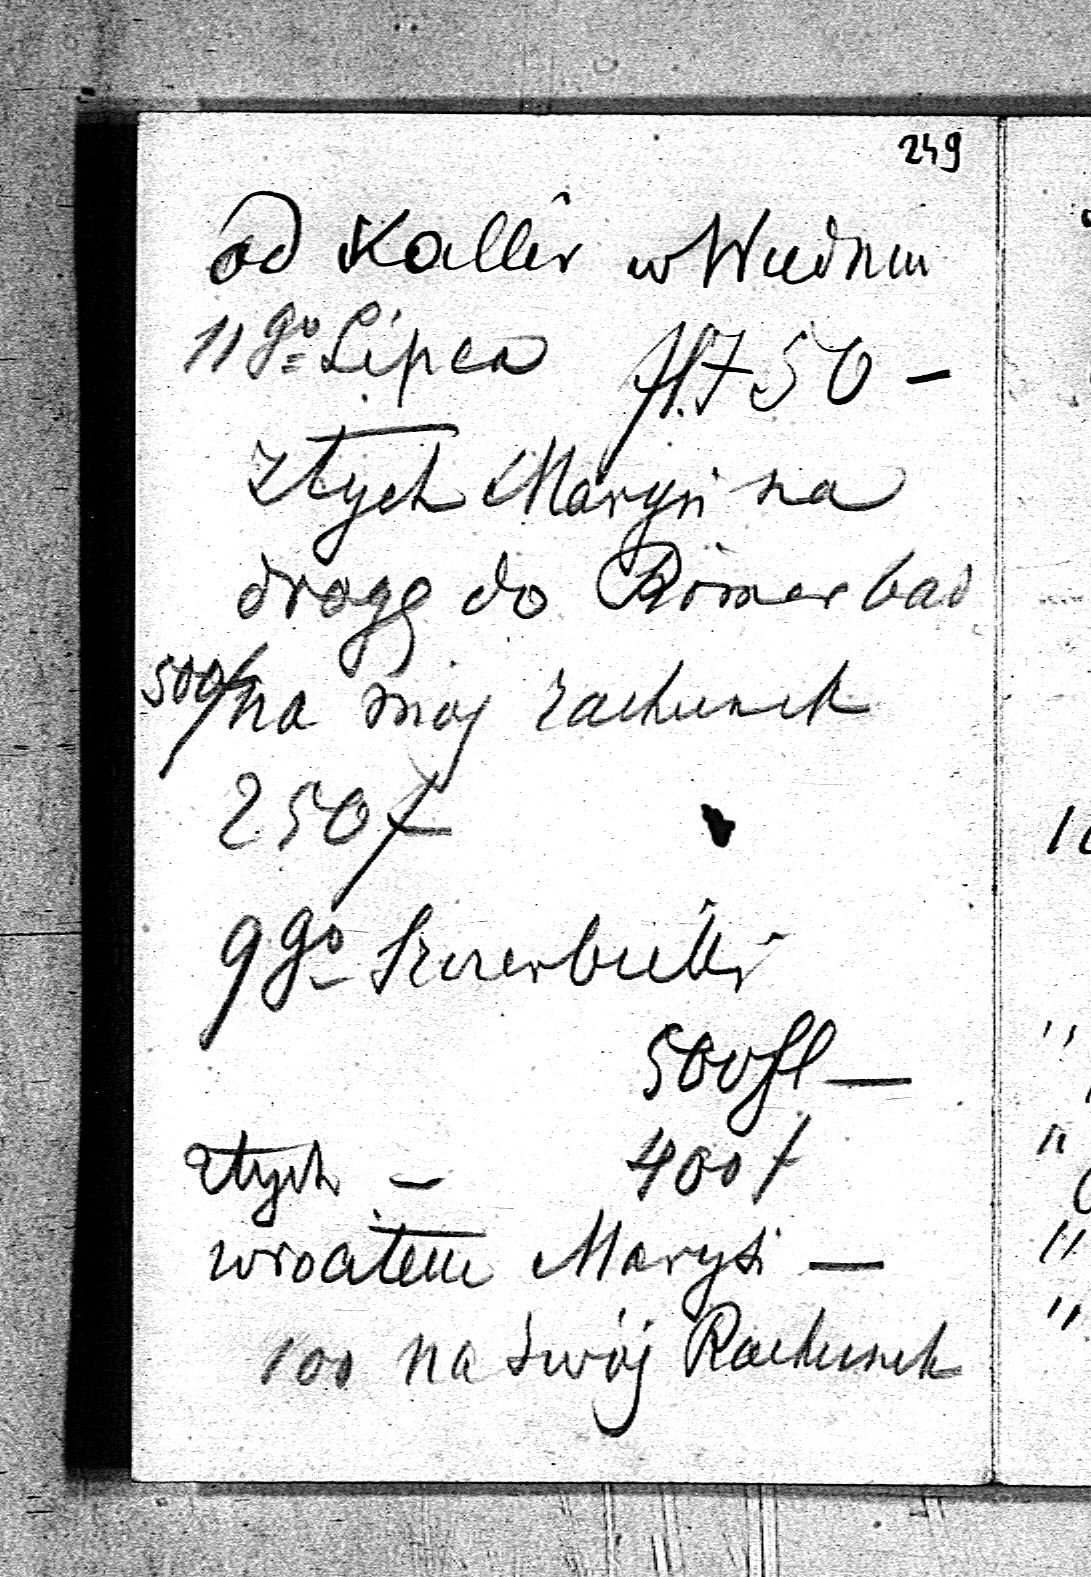 249
od Kallir w Wiedniu
11go Lipca fl. 750 —
z tych Marysi na
drogę do Römerbad
500f na mój rachunek
250f
9go Szczerbicki
500 fl —
z tych — 400 f
wrocałem Marysi —
100 na swój Rachunek